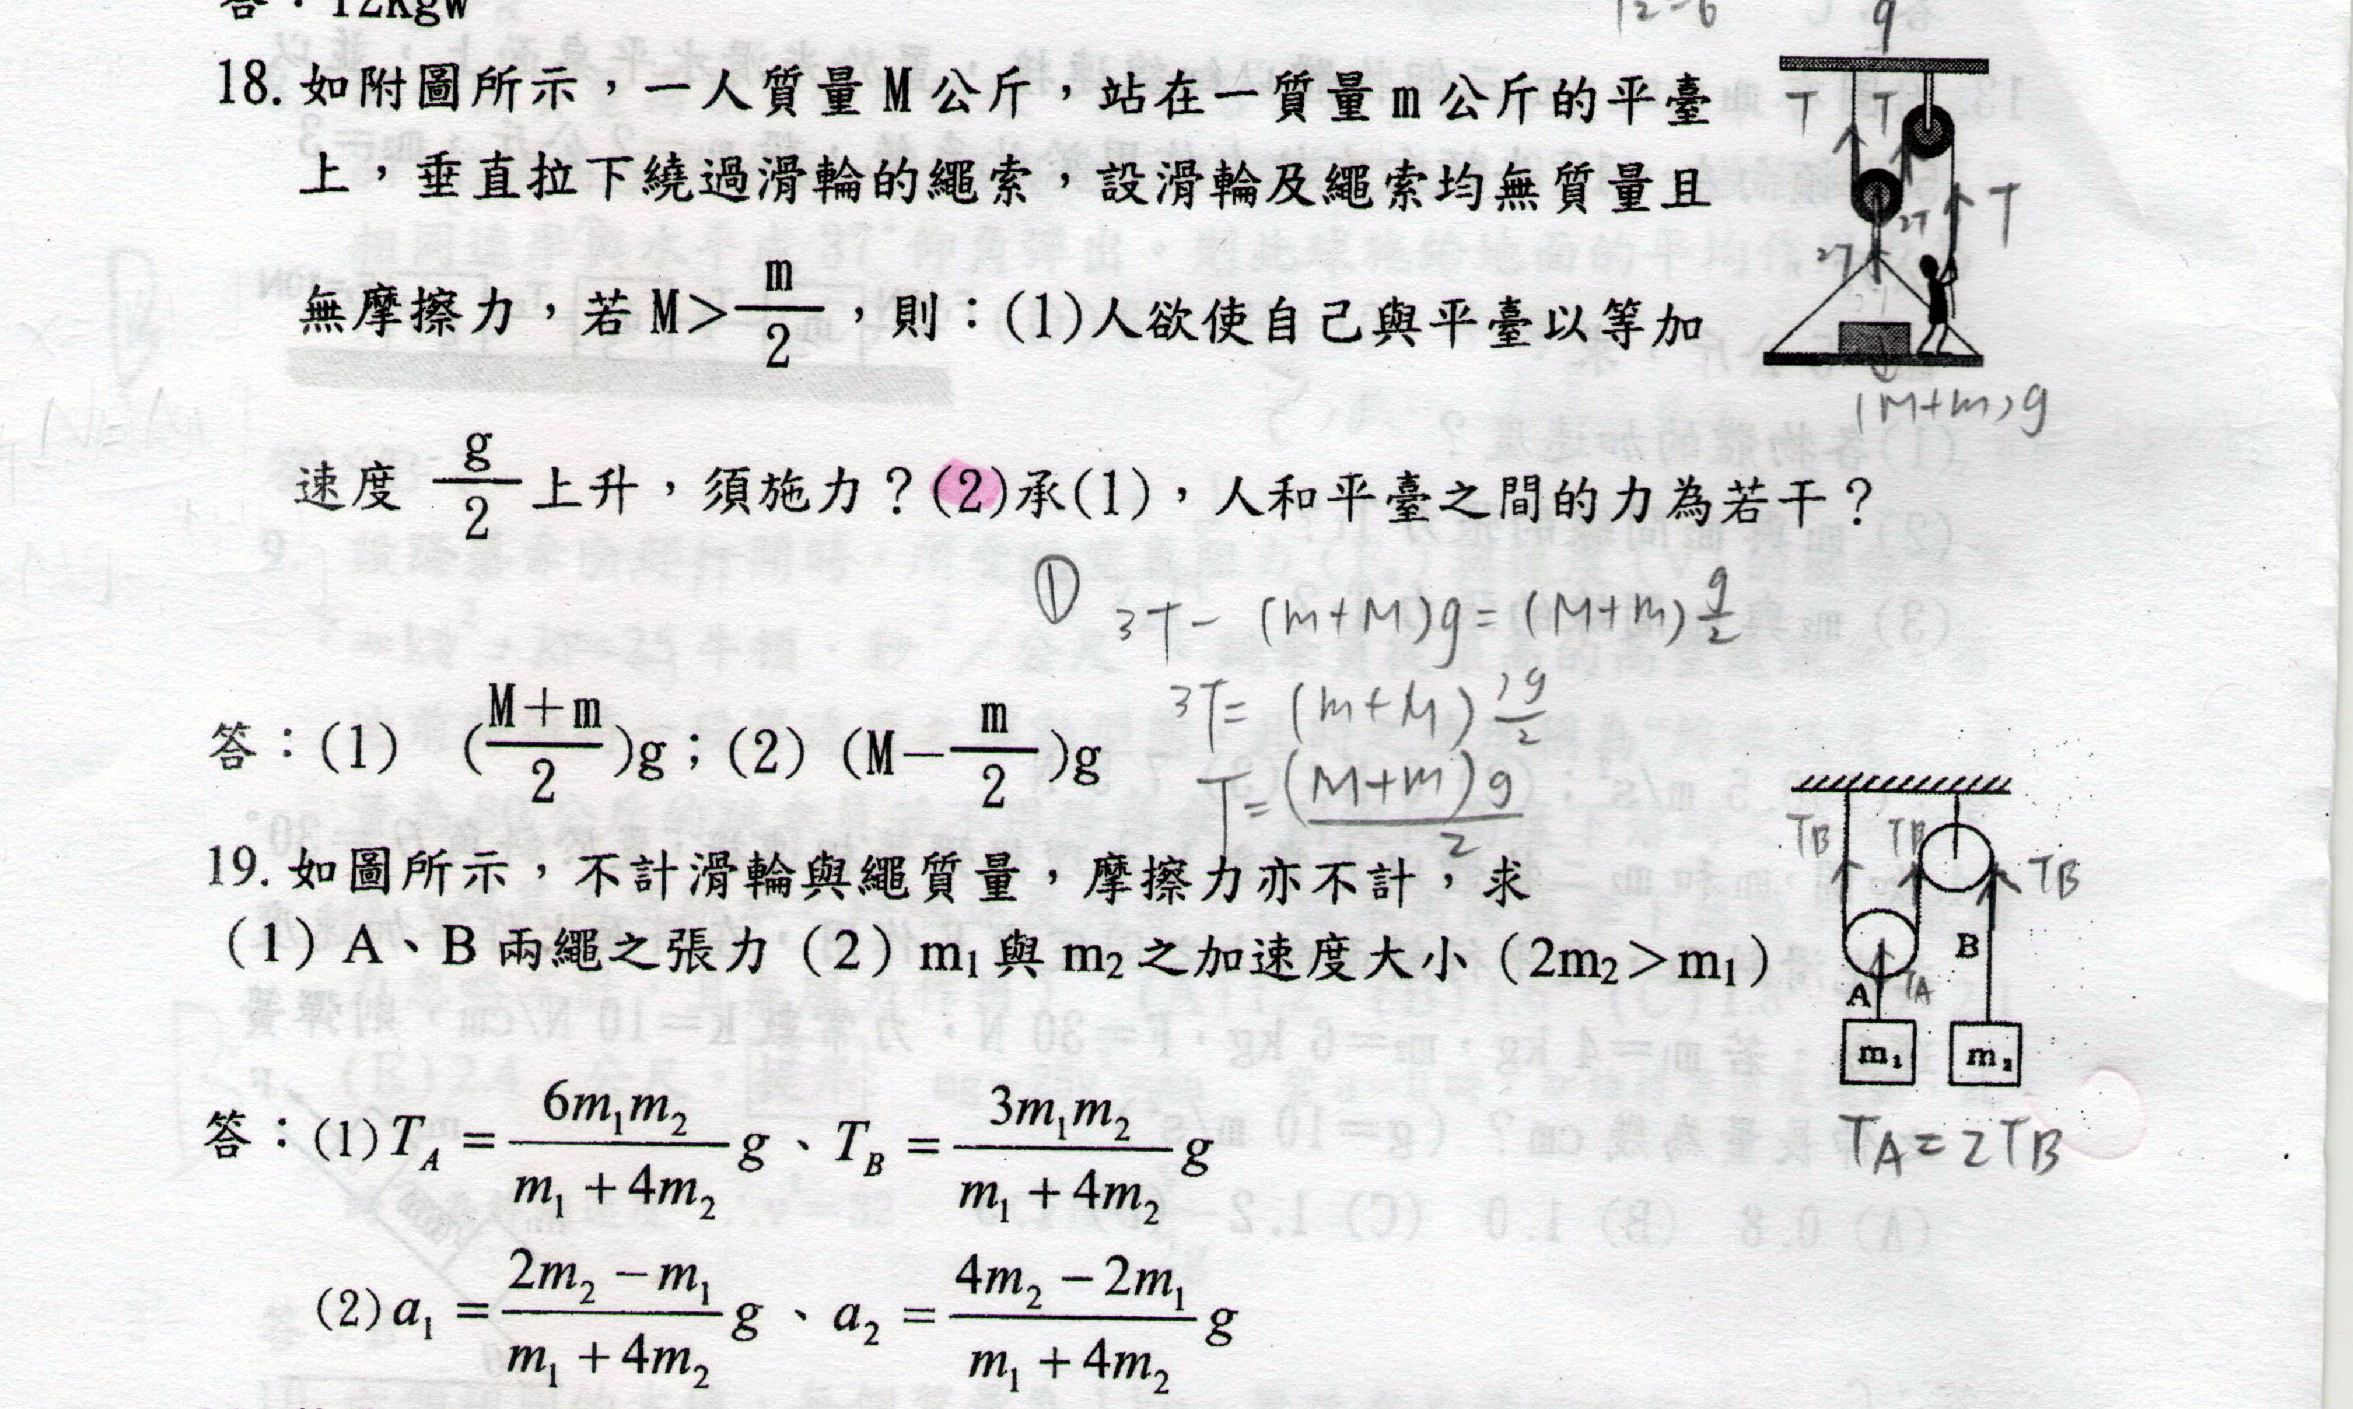 答：12Kgw
12-6
18. 如附圖所示，一人質量M公斤，站在一質量m公斤的平臺
上，垂直拉下繞過滑輪的繩索，設滑輪及繩索均無質量且
無摩擦力，若M＞m/2，則：(1)人欲使自己與平臺以等加
速度 g/2 上升，須施力？(2)承(1)，人和平臺之間的力為若干？
T T
T
2T
2T
(M+m)g
① 3T- (m+M)g = (M+m) g/2
3T= (m+M) 3g/2
T= (M+m)g/2
答：(1) (M＋m/2)g；(2) (M－m/2)g
19. 如圖所示，不計滑輪與繩質量，摩擦力亦不計，求
(1) A、B 兩繩之張力 (2) m₁與 m₂之加速度大小 (2m₂＞m₁)
TB TB
TB
B
A TA
m₁ m₂
TA=2TB
答：(1) T_A = 6m₁m₂/(m₁+4m₂) g、T_B = 3m₁m₂/(m₁+4m₂) g
(2) a₁ = (2m₂-m₁)/(m₁+4m₂) g、a₂ = (4m₂-2m₁)/(m₁+4m₂) g